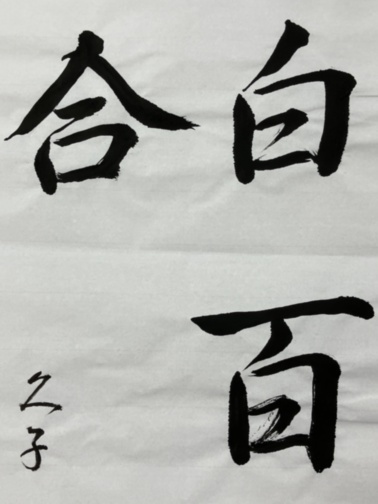 白百合
久子